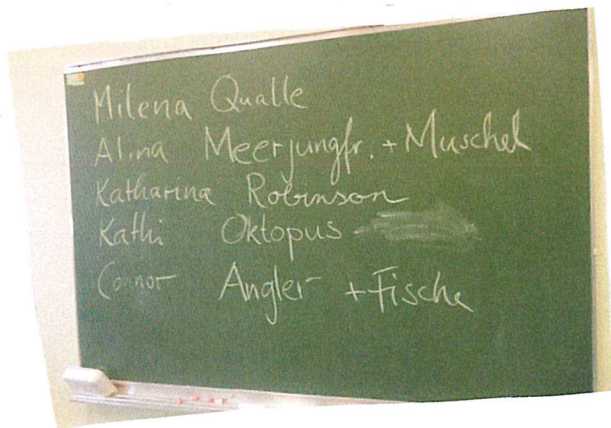 Milena Qualle
Alina Meerjungfr. + Muschel
Katharina Robinson
Kathi Oktopus
Connor Angler + Fische